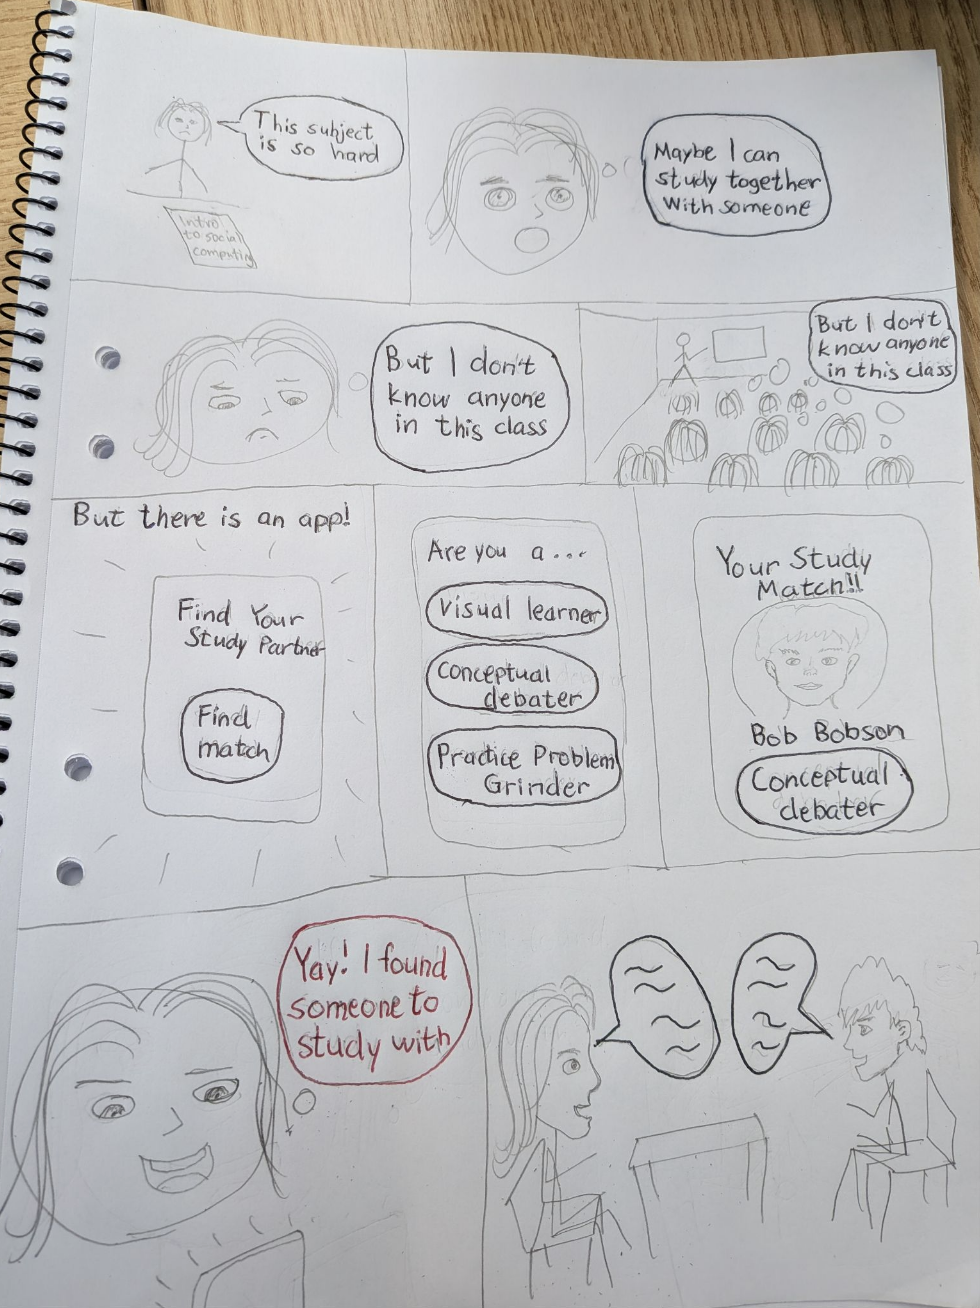 This subject
is so hard
Intro
to social
computing
Maybe I can
study together
with someone
But I don't
know anyone
in this class
But I don't
know anyone
in this class
But there is an app!
Find Your
Study Partner
Find
match
Are you a...
Visual learner
Conceptual
debater
Practice Problem
Grinder
Your Study
Match!!
Bob Bobson
Conceptual
debater
Yay! I found
someone to
study with